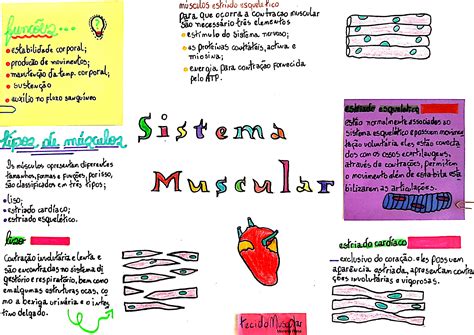 funções...
• estabilidade corporal;
• produção de movimentos;
• manutenção da temp. corporal;
• sustentação
• auxílio no fluxo sanguíneo
músculos estriado esquelético
para que ocorra a contração muscular
são necessário três elementos
• estímulo do sistema nervoso;
• as proteínas contráteis, actina e
miosina;
• energia para contração fornecida
pelo ATP.
tipos de músculos
Os músculos apresentam diferentes
tamanhos, formas e funções, por isso,
são classificados em três tipos:
• liso;
• estriado cardíaco;
• estriado esquelético.
Sistema
Muscular
estriado esquelético
estão normalmente associados ao
sistema esquelético e possuem movimen
tação voluntária eles estão conecta
dos com os ossos e cartilagens,
através de contrações, permitem
o movimento além de estabi
bilizarem as articulações.
liso
Contração involuntária e lenta e
são encontradas no sistema di
gestório e respiratório, bem como
em algumas estruturas ocas, co
mo a bexiga urinária e o intes
tino delgado.
estriado cardíaco
exclusivo do coração. eles possuem
aparência estriada, apresentam contra
ções involuntárias e vigorosas.
tecido Muscular